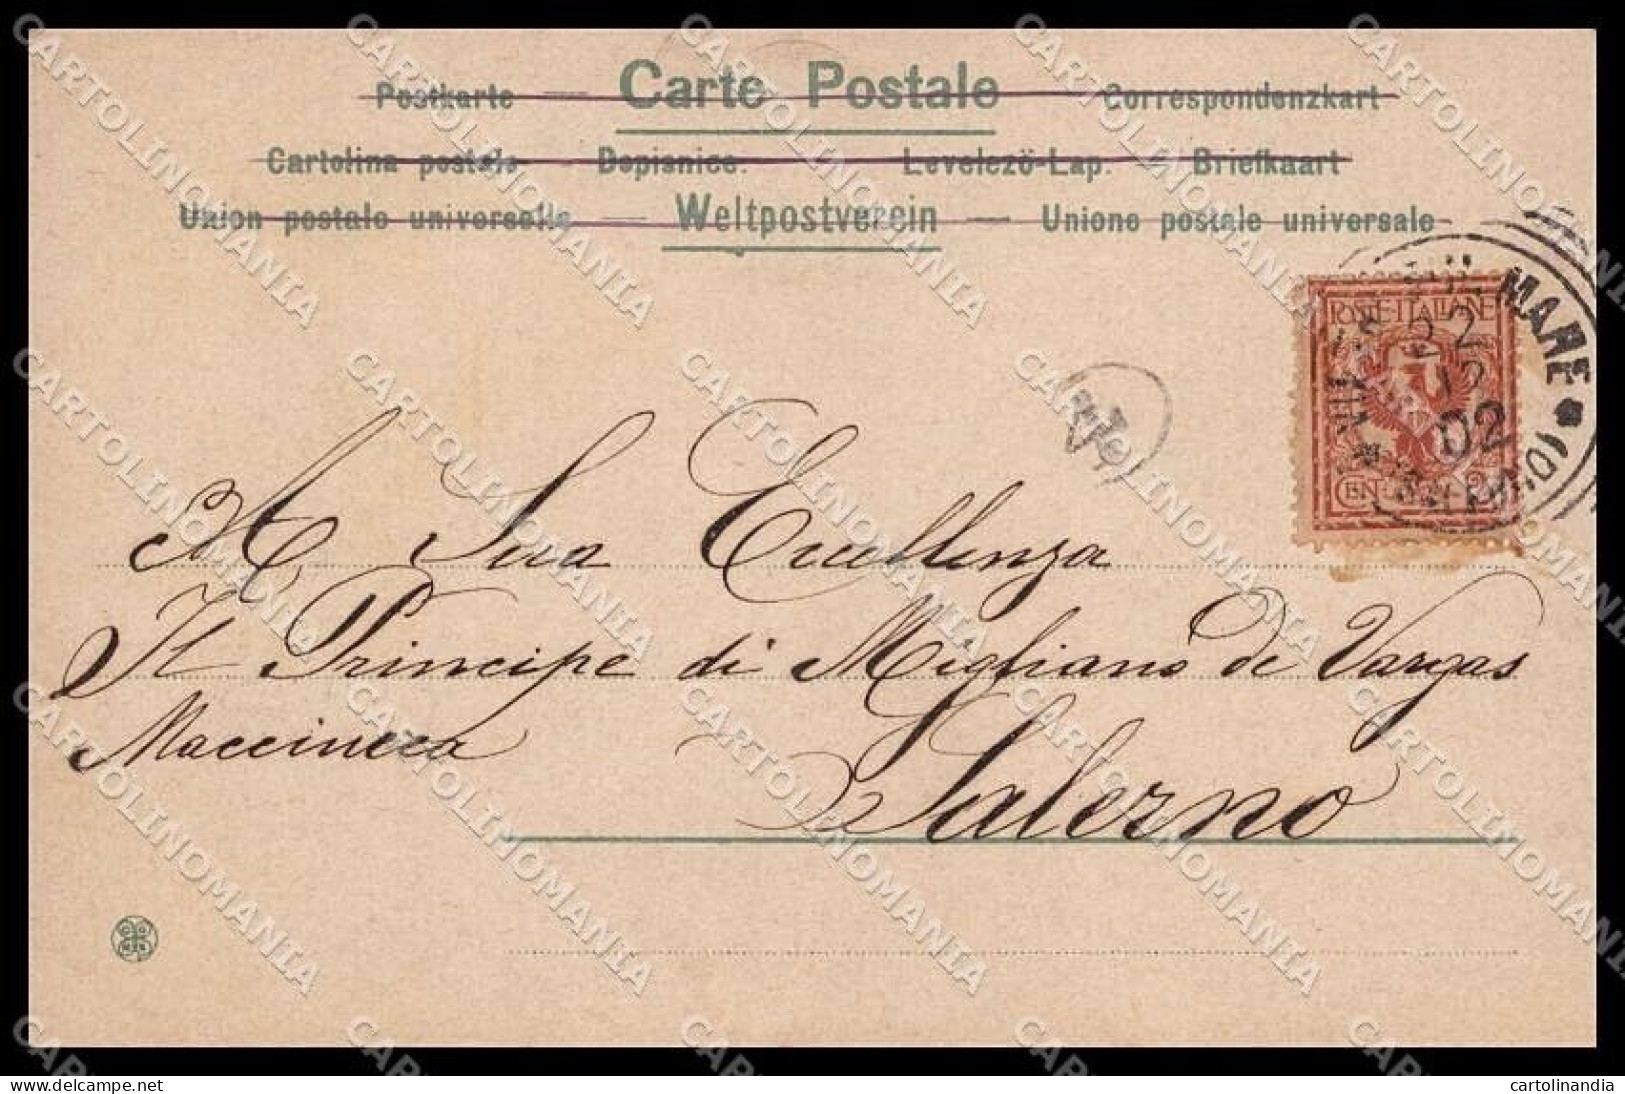 Carte Postale
Postkarte — Correspondenzkart
Cartolina postale — Dopisnice. Levelező-Lap. Briefkaart
Union postale universelle — Weltpostverein — Unione postale universale
POSTE ITALIANE
22
12
02
MARE
CENT. 2
A Sua Eccellenza
Il Principe di Migliano de Vargas
Macciucca
Salerno
CARTOLINOMANIA
cartolinandia